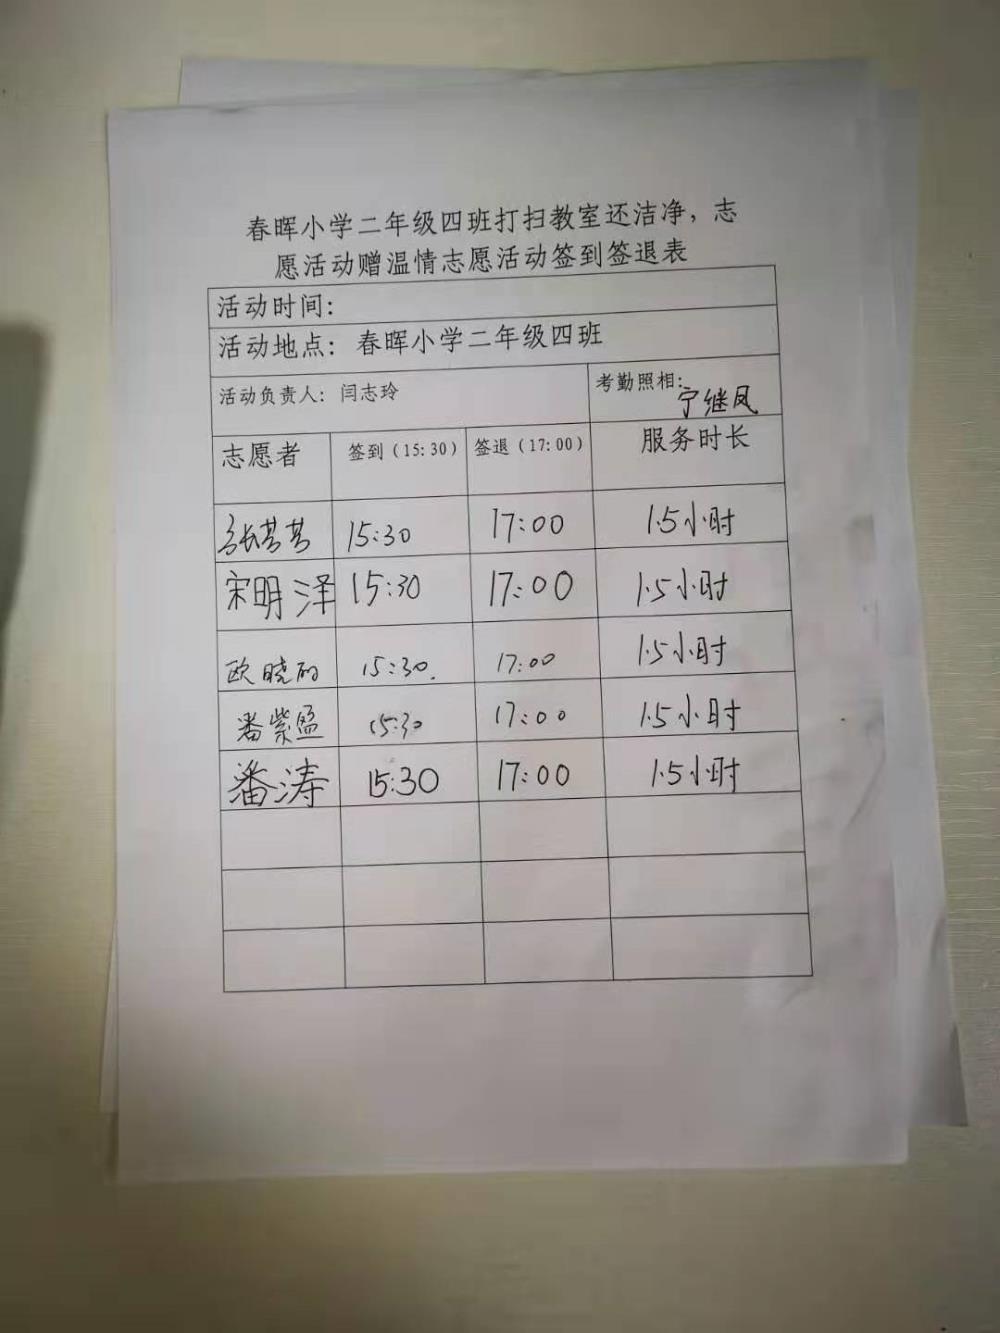 春晖小学二年级四班打扫教室还洁净，志
愿活动赠温情志愿活动签到签退表
活动时间：
活动地点：春晖小学二年级四班
活动负责人：闫志玲 考勤照相：宁继凤
志愿者 签到（15:30） 签退（17:00） 服务时长
张芸芸 15:30 17:00 1.5小时
宋明泽 15:30 17:00 1.5小时
欧晓 15:30. 17:00 1.5小时
番紫盈 15:30 17:00 1.5小时
潘涛 15:30 17:00 1.5小时